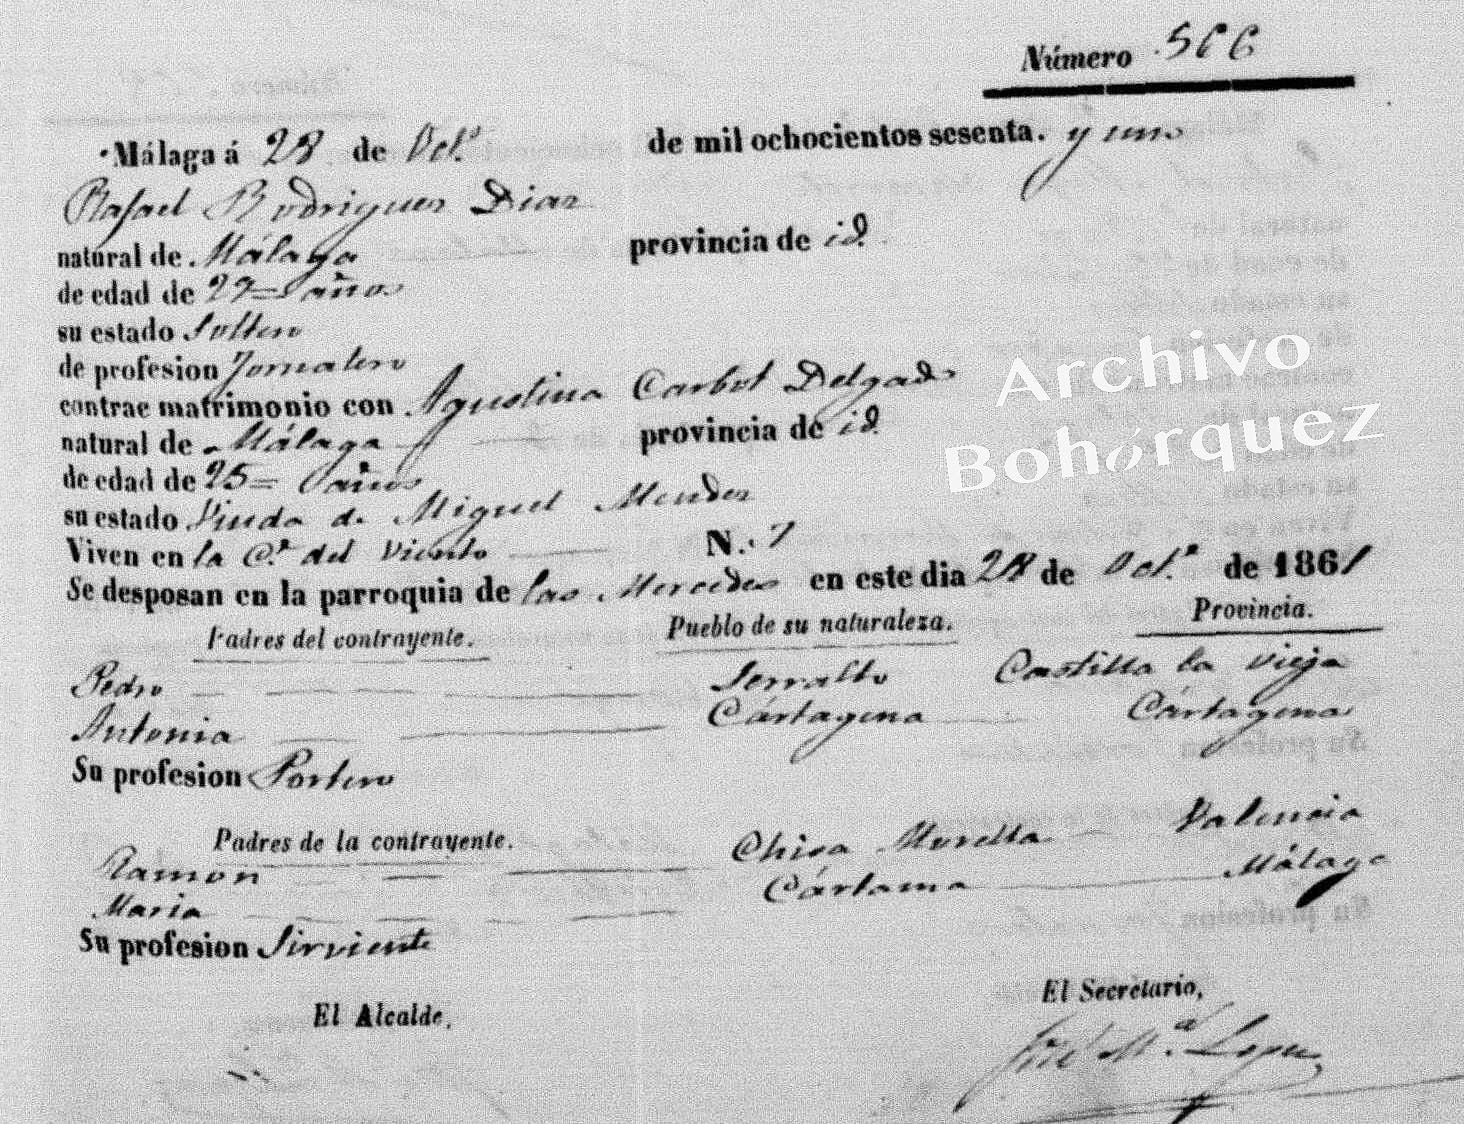 Número 566
Málaga á 28 de Oct.e de mil ochocientos sesenta. y uno
Rafael Rodriguez Diaz
natural de Málaga provincia de id.
de edad de 27 = años
su estado Soltero
de profesion Jornalero
contrae matrimonio con Agustina Carbot Delgado
natural de Málaga provincia de id.
de edad de 25 = años
su estado Viuda de Miguel Mendez
Viven en la C.e del Viento N. 7
Se desposan en la parroquia de las Mercedes en este dia 28 de Oct.e de 1861
Padres del contrayente. Pueblo de su naturaleza. Provincia.
Pedro Serralto Castilla la vieja
Antonia Cártagena Cártagena
Su profesion Portero
Padres de la contrayente.
Ramon Chiva Morella Valencia
Maria Cártama Málaga
Su profesion Sirviente
El Alcalde, El Secretario,
José M.a Lopez
Archivo
Bohórquez